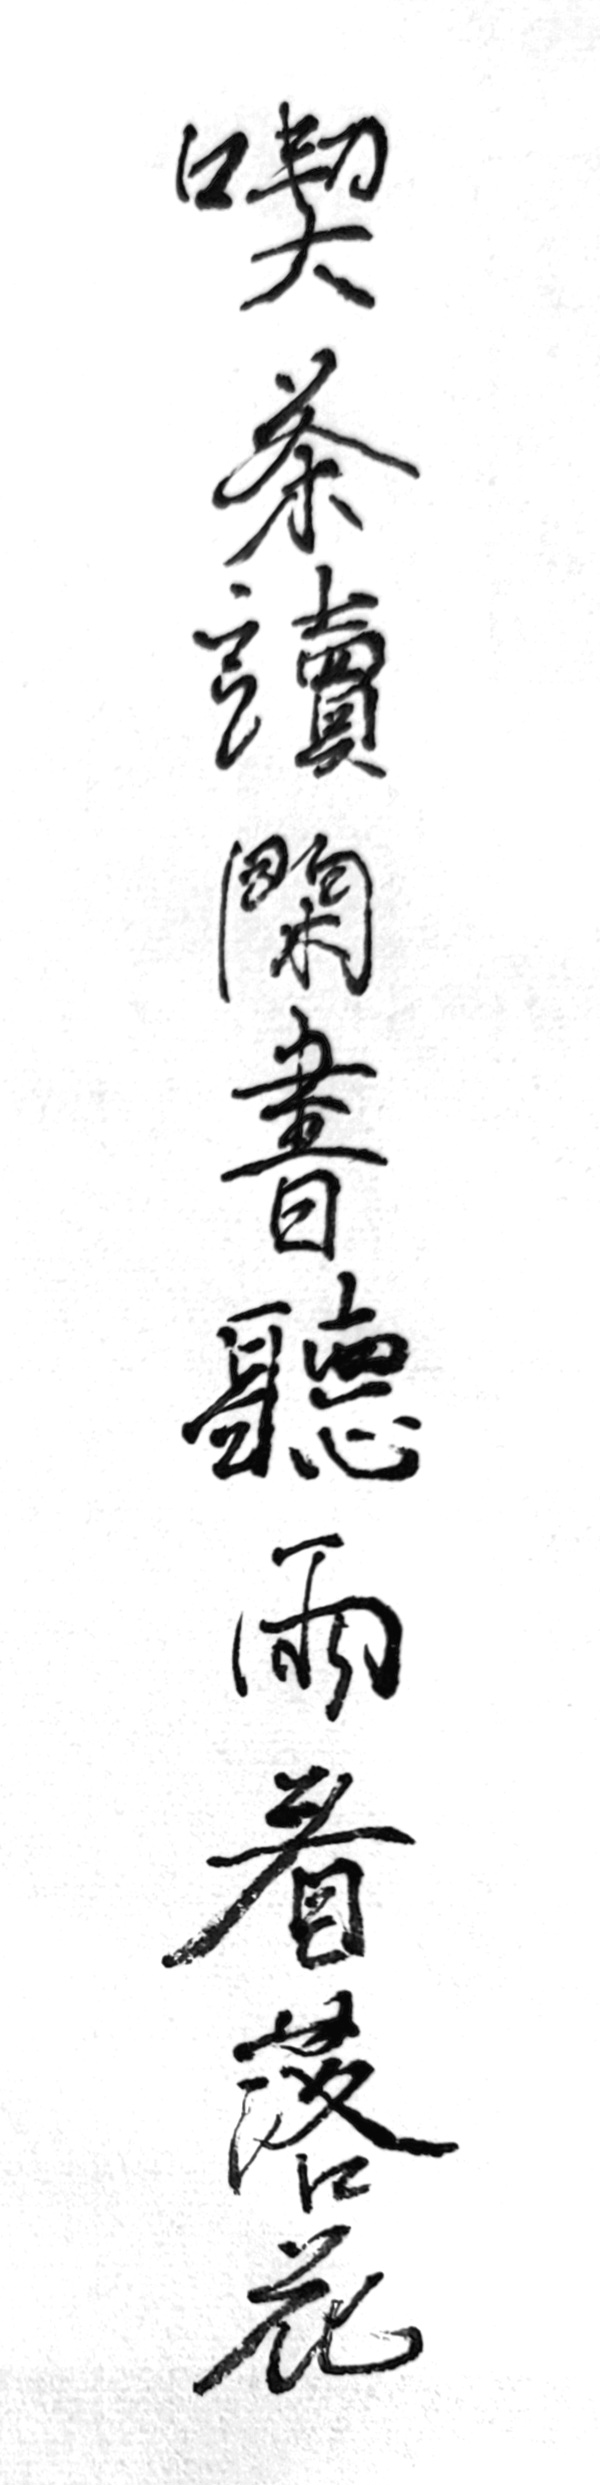 喫茶讀閑書聽雨看落花